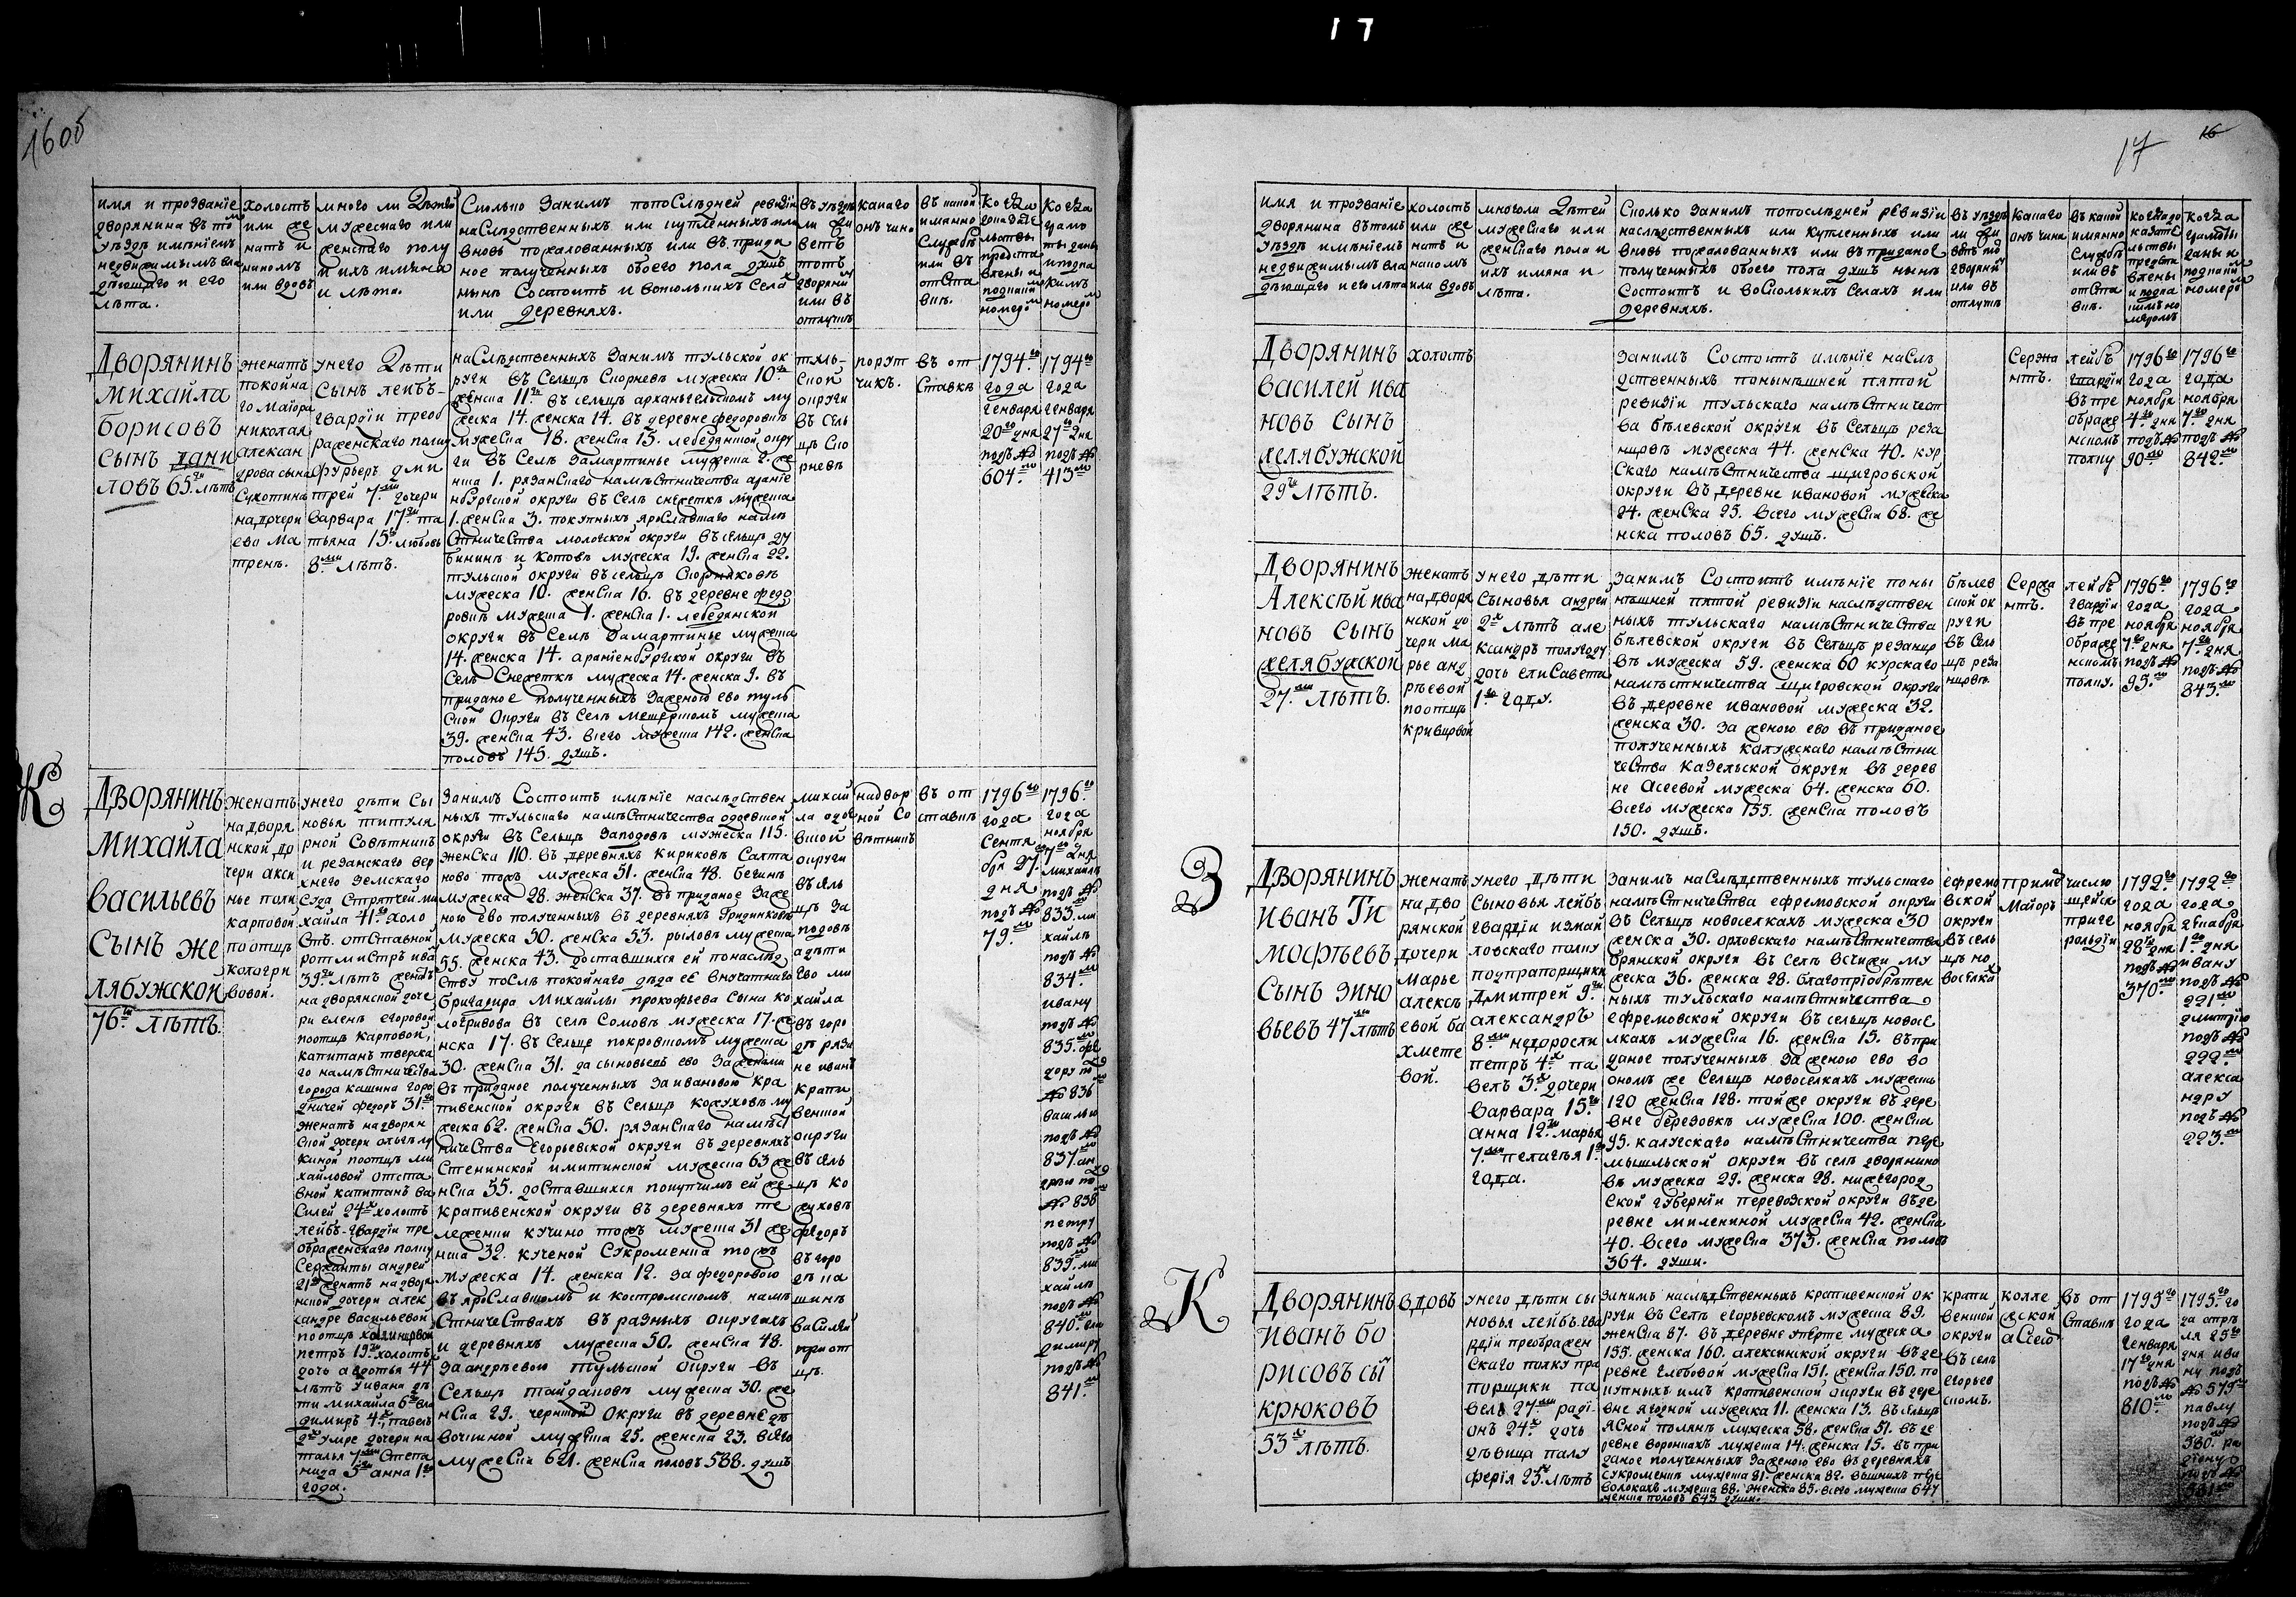 17
160б
имя и прозваніе
дворянина въ томъ
уѣздѣ имѣніемъ
недвижимымъ вла
дѣющаго и его
лѣта.
холостъ
или же
натъ и
на комъ
или вдовъ
много ли дѣтей
мужескаго или
женскаго полу
и ихъ имяна
и лѣта.
Сколько за нимъ по послѣдней ревизіи
наслѣдственныхъ или купленныхъ или
вновь пожалованныхъ или въ прида
ное полученныхъ обоего пола душъ
нынѣ состоитъ и во сколькихъ селахъ
или деревняхъ.
въ уѣздѣ
ли жи
ветъ
тотъ
дворянинъ
или въ
отлучкѣ
какаго
онъ чина
въ какой
имянно
службѣ
или въ
отста
вкѣ.
Дворянинъ
Михайла
борисовъ
сынъ дани
ловъ 65ти лѣтъ
женатъ
покойна
го маіора
николая
алексан
дрова сына
Сухотина
на дочери
ево Ма
тренѣ.
у него дѣти
сынъ лейбъ-
гвардіи преоб
раженскаго полку
фурьеръ дми
трей 7ми дочери
варвара 17ти та
тьяна 15ти любовь
8ми лѣтъ.
наслѣдственныхъ за нимъ тульской ок
руги въ сельцѣ скорневѣ мужеска 10ть
женска 11ть въ сельцѣ архангельскомъ му
жеска 14. женска 14. въ деревне федоровкѣ
мужеска 18. женска 15. лебедянской окру
ги въ селѣ замартинье мужеска 2. же
нска 1. рязанскаго намѣстничества аранiе
нбургской округи въ селѣ снежеткѣ мужеска
1. женска 3. покупныхъ ярославскаго намѣ
стничества моложской округи въ сельцѣ ду
бининѣ и котовѣ мужеска 19. женска 22.
тульской округи въ сельцѣ скорняковѣ
мужеска 10. женска 16. въ деревне федо
ровкѣ мужеска 1. женска 1. лебедянской
округи въ селѣ замартинье мужеска
14. женска 14. аранiенбургской округи въ
селѣ снежеткѣ мужеска 14. женска 9. въ
приданое полученныхъ за женою ево туль
ской округи въ селѣ мещерскомъ мужеска
39. женска 43. всего мужеска 142. женска
половъ 145. душъ.
туль-
ской
округи
въ сель
цѣ ско
рневѣ
порут
чикъ.
въ от
ставкѣ
1794го
года
генваря
20го дня
подъ №
604мъ
1794го
года
генваря
27го дня
подъ №
413мъ
Ж
Дворянинъ
Михайла
васильевъ
сынъ же
лябужской
76ти лѣтъ.
женатъ
на дворя
нской до
чери акси
нье поли
карповой
по отцѣ
кологри
вовой.
у него дѣти сы
новья титуля
рной совѣтникъ
и резанскаго вер
хнего земскаго
суда стряпчей ми
хайла 41го холо
стъ. отставной
ротмистръ ива
39ти лѣтъ женатъ
на дворянской доче
ри еленѣ егоровой
по отцѣ карповой,
капитанъ тверска
го намѣстничества
города кашина горо
дничей федоръ 31го
женатъ на дворян
ской дочери
по отцѣ ми
хайловой отста
вной капитанъ ва
силей 24х холостъ
лейбъ-гвардіи пре
ображенскаго полку
сержанты андрей
21го женатъ на дворя
нской дочери алек
сандре васильевой
по отцѣ
петръ 19ти холостъ
дочь авдотья 44х
лѣтъ у ивана дѣ
ти михайла 6ти вла
димиръ 4х, павелъ
2х умре дочери на
талья 7ми степа
нида 5ти анна 1го
года.
за нимъ состоитъ имѣніе наслѣдствен
ныхъ тульскаго намѣстничества одоевской
округи въ сельцѣ заподовѣ мужеска 115.
женска 110. въ деревняхъ кириковѣ салта
ново тожъ мужеска 51. женска 48. бегинѣ
мужеска 28. женска 37. въ приданое за же
ною ево полученныхъ въ деревняхъ гридинковѣ
мужеска 50. женска 53. рыловѣ мужеска
55. женска 43. доставшихся по наслѣд
ству послѣ покойнаго дѣда ее внучатнаго
бригадира михайлы прокофьева сына ко
логривова въ селѣ сомовѣ мужеска 17. же
нска 17. въ сельце покровскомъ мужеска
30. женска 31. за сыновьевъ ево за женами
въ приданое полученныхъ за ивановою кра
пивенской округи въ сельцѣ кожуховѣ му
жеска 62. женска 50. рязанскаго намѣст
ничества егорьевской округи въ деревняхъ
стенинской и митинской мужеска 63 же
нска 55. доставшихся по купчимъ ей же
крапивенской округи въ деревняхъ те
лежении кучино тожъ мужеска 31 же
нска 32. кученой сукроменка тожъ
мужеска 14. женска 12. за федоровою
въ ярославскомъ и костромскомъ намѣ
стничествахъ въ разныхъ округахъ
и деревняхъ мужеска 50. женска 48.
за андрѣевою тульской округи въ
сельцѣ тайдаковѣ мужеска 30. же
нска 29. чернской округи въ деревне дѣ
вочкиной мужеска 25. женска 23. всего
мужеска 621. женска половъ 588. душъ
михай
ла одое
вской
округи
въ сель
цѣ за
подовѣ
а дѣти
ево ми
хайла
въ горо
дѣ ряза
не иванъ
крапи
венской
округи
въ сель
цѣ ко
жуховѣ
федоръ
въ горо
дѣ ка
шинѣ
василей
при от
цѣ.
надвор
ной со
вѣтникъ
въ от
ставкѣ
1796го
года
сентя
бря 27го
дня
подъ №
79мъ
1796го
года
ноября
7го дня
михайлѣ
подъ №
833мъ ми
хайлѣ
подъ №
834мъ
ивану
подъ №
835. фе
дору подъ
№ 836
василью
подъ №
837. ан
дрѣю подъ
№ 838
петру
подъ №
839. ми
хайлѣ
подъ №
840. вла
димиру
подъ №
841мъ
17
16
имя и прозваніе
дворянина въ томъ
уѣздѣ имѣніемъ
недвижимымъ вла
дѣющаго и его лѣта
холостъ
или же
натъ и
на комъ
или вдовъ
много ли дѣтей
мужескаго или
женскаго пола и
ихъ имяна и
лѣта.
Сколько за нимъ по послѣдней ревизіи
наслѣдственныхъ или купленныхъ или
вновь пожалованныхъ или въ приданое
полученныхъ обоего пола душъ нынѣ
состоитъ и во сколькихъ селахъ или
деревняхъ.
въ уѣздѣ
ли жи
ветъ тотъ
дворянинъ
или въ
отлучкѣ
какаго
онъ чина
въ какой
имянно
службѣ
или въ
отста
вкѣ.
когда до
казате
льствы
предста
влены
и подка
кимъ но
меромъ
когда
грамоты
даны и
подкакимъ
номеромъ
Дворянинъ
василей ива
новъ сынъ
желябужской
29ти лѣтъ.
холостъ
за нимъ состоитъ имѣніе наслѣ
дственныхъ по нынѣшней пятой
ревизіи тульскаго намѣстничест
ва бѣлевской округи въ сельцѣ реза
нцовѣ мужеска 44. женска 40. кур
скаго намѣстничества щигровской
округи въ деревне ивановой мужеска
24. женска 25. всего мужеска 68. же
нска половъ 65. душъ.
сержа
нтъ.
лейбъ
гвардіи
въ пре
ображе
нскомъ
полку
1796го
года
ноября
4го дня
подъ №
90мъ
1796го
года
ноября
7го дня
подъ №
842мъ
Дворянинъ
Алексѣй ива
новъ сынъ
желябужской
27ми лѣтъ.
женатъ
на дворя
нской до
чери ма
рье анд
рѣевой
по отцѣ
кривцовой
у него дѣти
сыновья андрей
2х лѣтъ але
ксандръ полугоду
дочь елисавета
1го году.
за нимъ состоитъ имѣніе по ны
нѣшней пятой ревизіи наслѣдствен
ныхъ тульскаго намѣстничества
бѣлевской округи въ сельцѣ резанцо
въ мужеска 59. женска 60 курскаго
намѣстничества щигровской округи
въ деревне ивановой мужеска 32.
женска 30. за женою ево въ приданое
полученныхъ калужскаго намѣстни
чества козельской округи въ дерев
не асеевой мужеска 64. женска 60.
всего мужеска 155. женска половъ
150. душъ.
бѣлев
ской ок
руги
въ сель
цѣ реза
нцовѣ
сержа
нтъ.
лейбъ
гвардіи
въ пре
ображе
нскомъ
полку.
1796го
года
ноября
7го дня
подъ №
95мъ
1796го
года
ноября
7го дня
подъ №
843мъ
З
Дворянинъ
иванъ Ти
мофѣевъ
сынъ зино
вьевъ 47ми лѣтъ
женатъ
на дво
рянской
дочери
марье
алексѣ
евой ба
хмете
вой.
у него дѣти
сыновья лейбъ
гвардіи измай
ловскаго полку
подпрапорщики
дмитрей 9ти
александръ
8ми недоросли
петръ 4х па
велъ 3х дочери
варвара 15ти
анна 12ти марья
7ми пелагѣя 1го
года.
за нимъ наслѣдственныхъ тульскаго
намѣстничества ефремовской округи
въ сельцѣ новоселкахъ мужеска 30
женска 30. орловскаго намѣстничества
брянской округи въ селѣ всчижи му
жеска 36. женска 28. благопріобрѣтен
ныхъ тульскаго намѣстничества
ефремовской округи въ сельцѣ новосе
лкахъ мужеска 16. женска 15. въ при
даное полученныхъ за женою ево во
ономъ же сельцѣ новоселкахъ мужеска
120 женска 128. той же округи въ дере
вне березовкѣ мужеска 100. женска
95. калужскаго намѣстничества пере
мышльской округи въ селѣ дворянино
въ мужеска 29. женска 28. нижегород
ской губерніи перевозской округи въ де
ревне милениной мужеска 42. женска
40. всего мужеска 373. женска половъ
364. души.
ефремо
вской
округи
въ сель
цѣ но
воселка
примеръ
маіоръ
числю
щейся
при ге
рольдіи
1792го
года
ноября
28го дня
подъ №
370мъ
1792го
года
декабря
1го дня
ивану
подъ №
221мъ
дмитрію
подъ №
222мъ
алекса
ндру
подъ №
223мъ
К
Дворянинъ
иванъ бо
рисовъ сынъ
крюковъ
53х лѣтъ.
вдовъ
у него дѣти сы
новья лейбъ гва
рдіи преображен
скаго полку пра
порщики па
велъ 27ми раді-
онъ 24х дочь
дѣвица палу
ферія 23х лѣтъ
за нимъ наслѣдственныхъ крапивенской ок
руги въ селѣ егорьевскомъ мужеска 89.
женска 87. въ деревне уперте мужеска
155. женска 160. алексинской округи въ де
ревне глебовой мужеска 151. женска 150. по
купныхъ имъ крапивенской округи въ дере
вне ягодной мужеска 11. женска 13. въ сельцѣ
ясной полянѣ мужеска 58. женска 51. въ де
ревне воронкахъ мужеска 14. женска 15. въ при
даное полученныхъ за женою ево въ деревняхъ
сукроменкѣ мужеска 81. женска 82. вышнихъ пере
волокахъ мужеска 88. женска 85. всего мужеска 647
женска половъ 643 души.
крапи
венской
округи
въ селѣ
егорьев
скомъ.
колле
жской
асессоръ
въ от
ставкѣ
1795го
года
генваря
17го дня
подъ №
810мъ
1795го го
да апрѣ
ля 25го
дня ива
ну подъ
№ 579мъ
павлу
подъ №
580. ра
діону
подъ №
581мъ